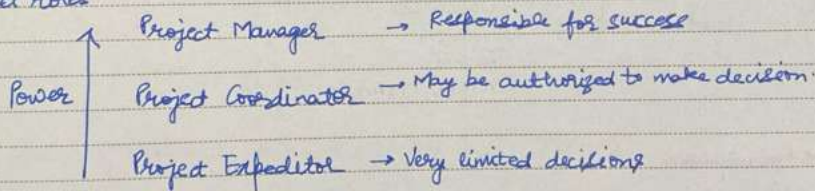 Project Manager → Responsible for success
Power Project Coordinator → May be authorized to make decision.
Project Expeditor → Very limited decisions